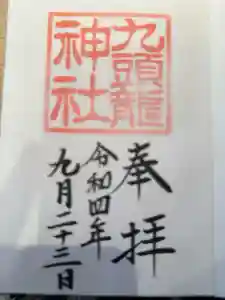 九頭龍
神社
奉拝
令和四年
九月二十三日